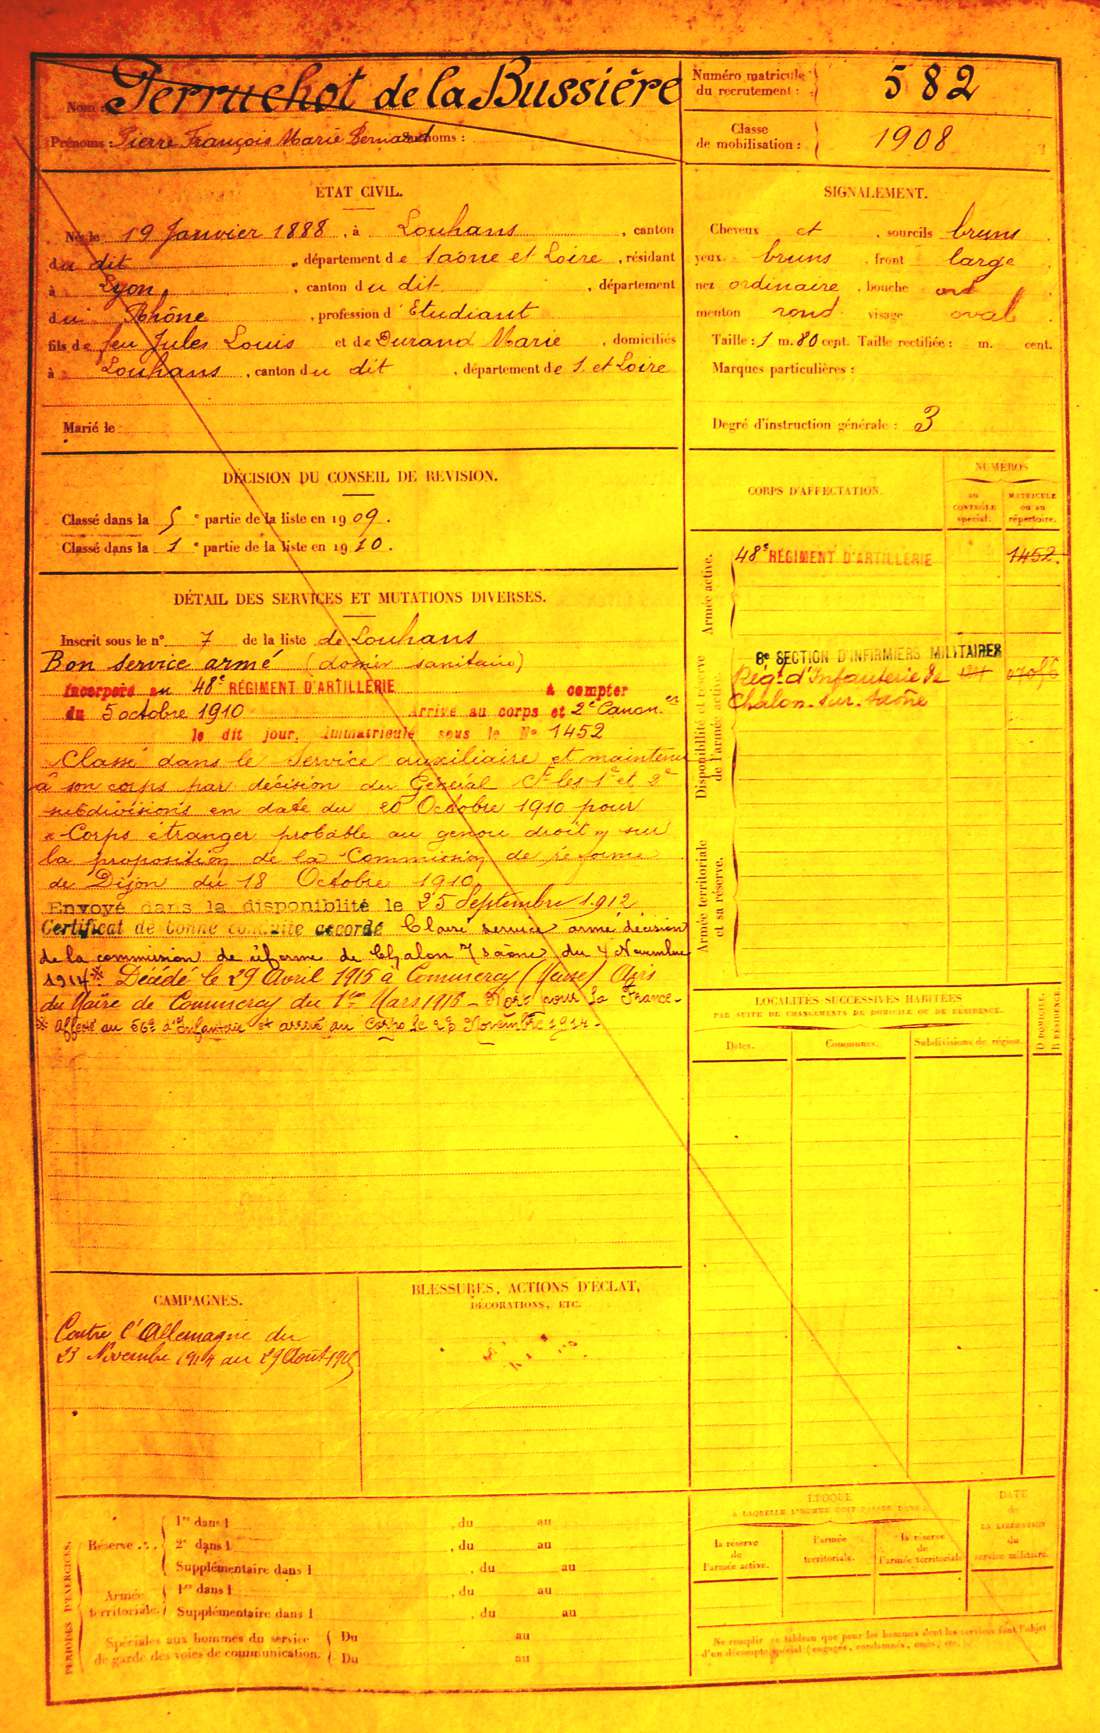 Nom : Perruchot de la Bussière
Prénoms : Pierre François Marie Bernard Surnoms :
Numéro matricule du recrutement : 582
Classe de mobilisation : 1908
ÉTAT CIVIL.
Né le 19 Janvier 1888, à Louhans, canton
du dit, département de Saône et Loire, résidant
à Lyon, canton du dit, département
du Rhône, profession d'Etudiant
fils de feu Jules Louis et de Durand Marie, domiciliés
à Louhans, canton du dit, département de S. et Loire
Marié le
SIGNALEMENT.
Cheveux et sourcils bruns
yeux bruns, front large
nez ordinaire, bouche
menton rond visage oval
Taille : 1 m. 80 cent. Taille rectifiée : m. cent.
Marques particulières :
Degré d'instruction générale : 3
DÉCISION DU CONSEIL DE RÉVISION.
Classé dans la 5e partie de la liste en 1909.
Classé dans la 1e partie de la liste en 1910.
DÉTAIL DES SERVICES ET MUTATIONS DIVERSES.
Inscrit sous le n° 7 de la liste de Louhans
Bon service armé (dossier sanitaire)
Incorporé au 48e RÉGIMENT D'ARTILLERIE à compter
du 5 octobre 1910 Arrivé au corps et 2e Canon.er
le dit jour. Immatriculé sous le No 1452
Classé dans le Service auxiliaire et maintenu
à son corps par décision du Général Ct les 1e et 2e
subdivisions en date du 20 Octobre 1910 pour
"Corps étranger probable au genou droit" sur
la proposition de la Commission de réforme
de Dijon du 18 Octobre 1910
Envoyé dans la disponiblité le 25 Septembre 1912
Certificat de bonne conduite accordé Classé service armé décision
de la commission de réforme de Chalon s/ Saône du 4 Novembre
1914 * Décédé le 29 Avril 1915 à Commercy (Meuse) Avis
du Maire de Commercy du 1er Mars 1915 - Mort pour la France -
* Affecté au 56e d'Infanterie et arrivé au Corps le 23 Novembre 1914 -
CORPS D'AFFECTATION.
NUMÉROS
AU CONTRÔLE spécial.
MATRICULE ou au répertoire.
Armée active.
48e RÉGIMENT D'ARTILLERIE 1452.
Disponibilité et réserve de l'armée active.
8e SECTION D'INFIRMIERS MILITAIRES
Régt d'Infanterie de
Chalon-sur-Saône
Armée territoriale et sa réserve.
LOCALITÉS SUCCESSIVES HABITÉES
PAR SUITE DE CHANGEMENTS DE DOMICILE OU DE RÉSIDENCE.
Dates. Communes. Subdivisions de région. D DOMICILE. R RÉSIDENCE.
CAMPAGNES.
Contre l'Allemagne du
23 Novembre 1914 au 29 Août 1915
BLESSURES, ACTIONS D'ÉCLAT,
DÉCORATIONS, ETC.
PÉRIODES D'EXERCICES.
Réserve
1re dans l , du au
2e dans l , du au
Supplémentaire dans l , du au
Armée territoriale.
1re dans l , du au
Supplémentaire dans l , du au
Spéciales aux hommes du service de garde des voies de communication.
Du au
Du au
ÉPOQUE
À LAQUELLE L'HOMME DOIT PASSER DANS :
la réserve de l'armée active.
l'armée territoriale.
la réserve de l'armée territoriale
DATE de LA LIBÉRATION du service militaire.
Ne remplir ce tableau que pour les hommes dont les services font l'objet
d'un décompte spécial (engagés, condamnés, omis, etc.)